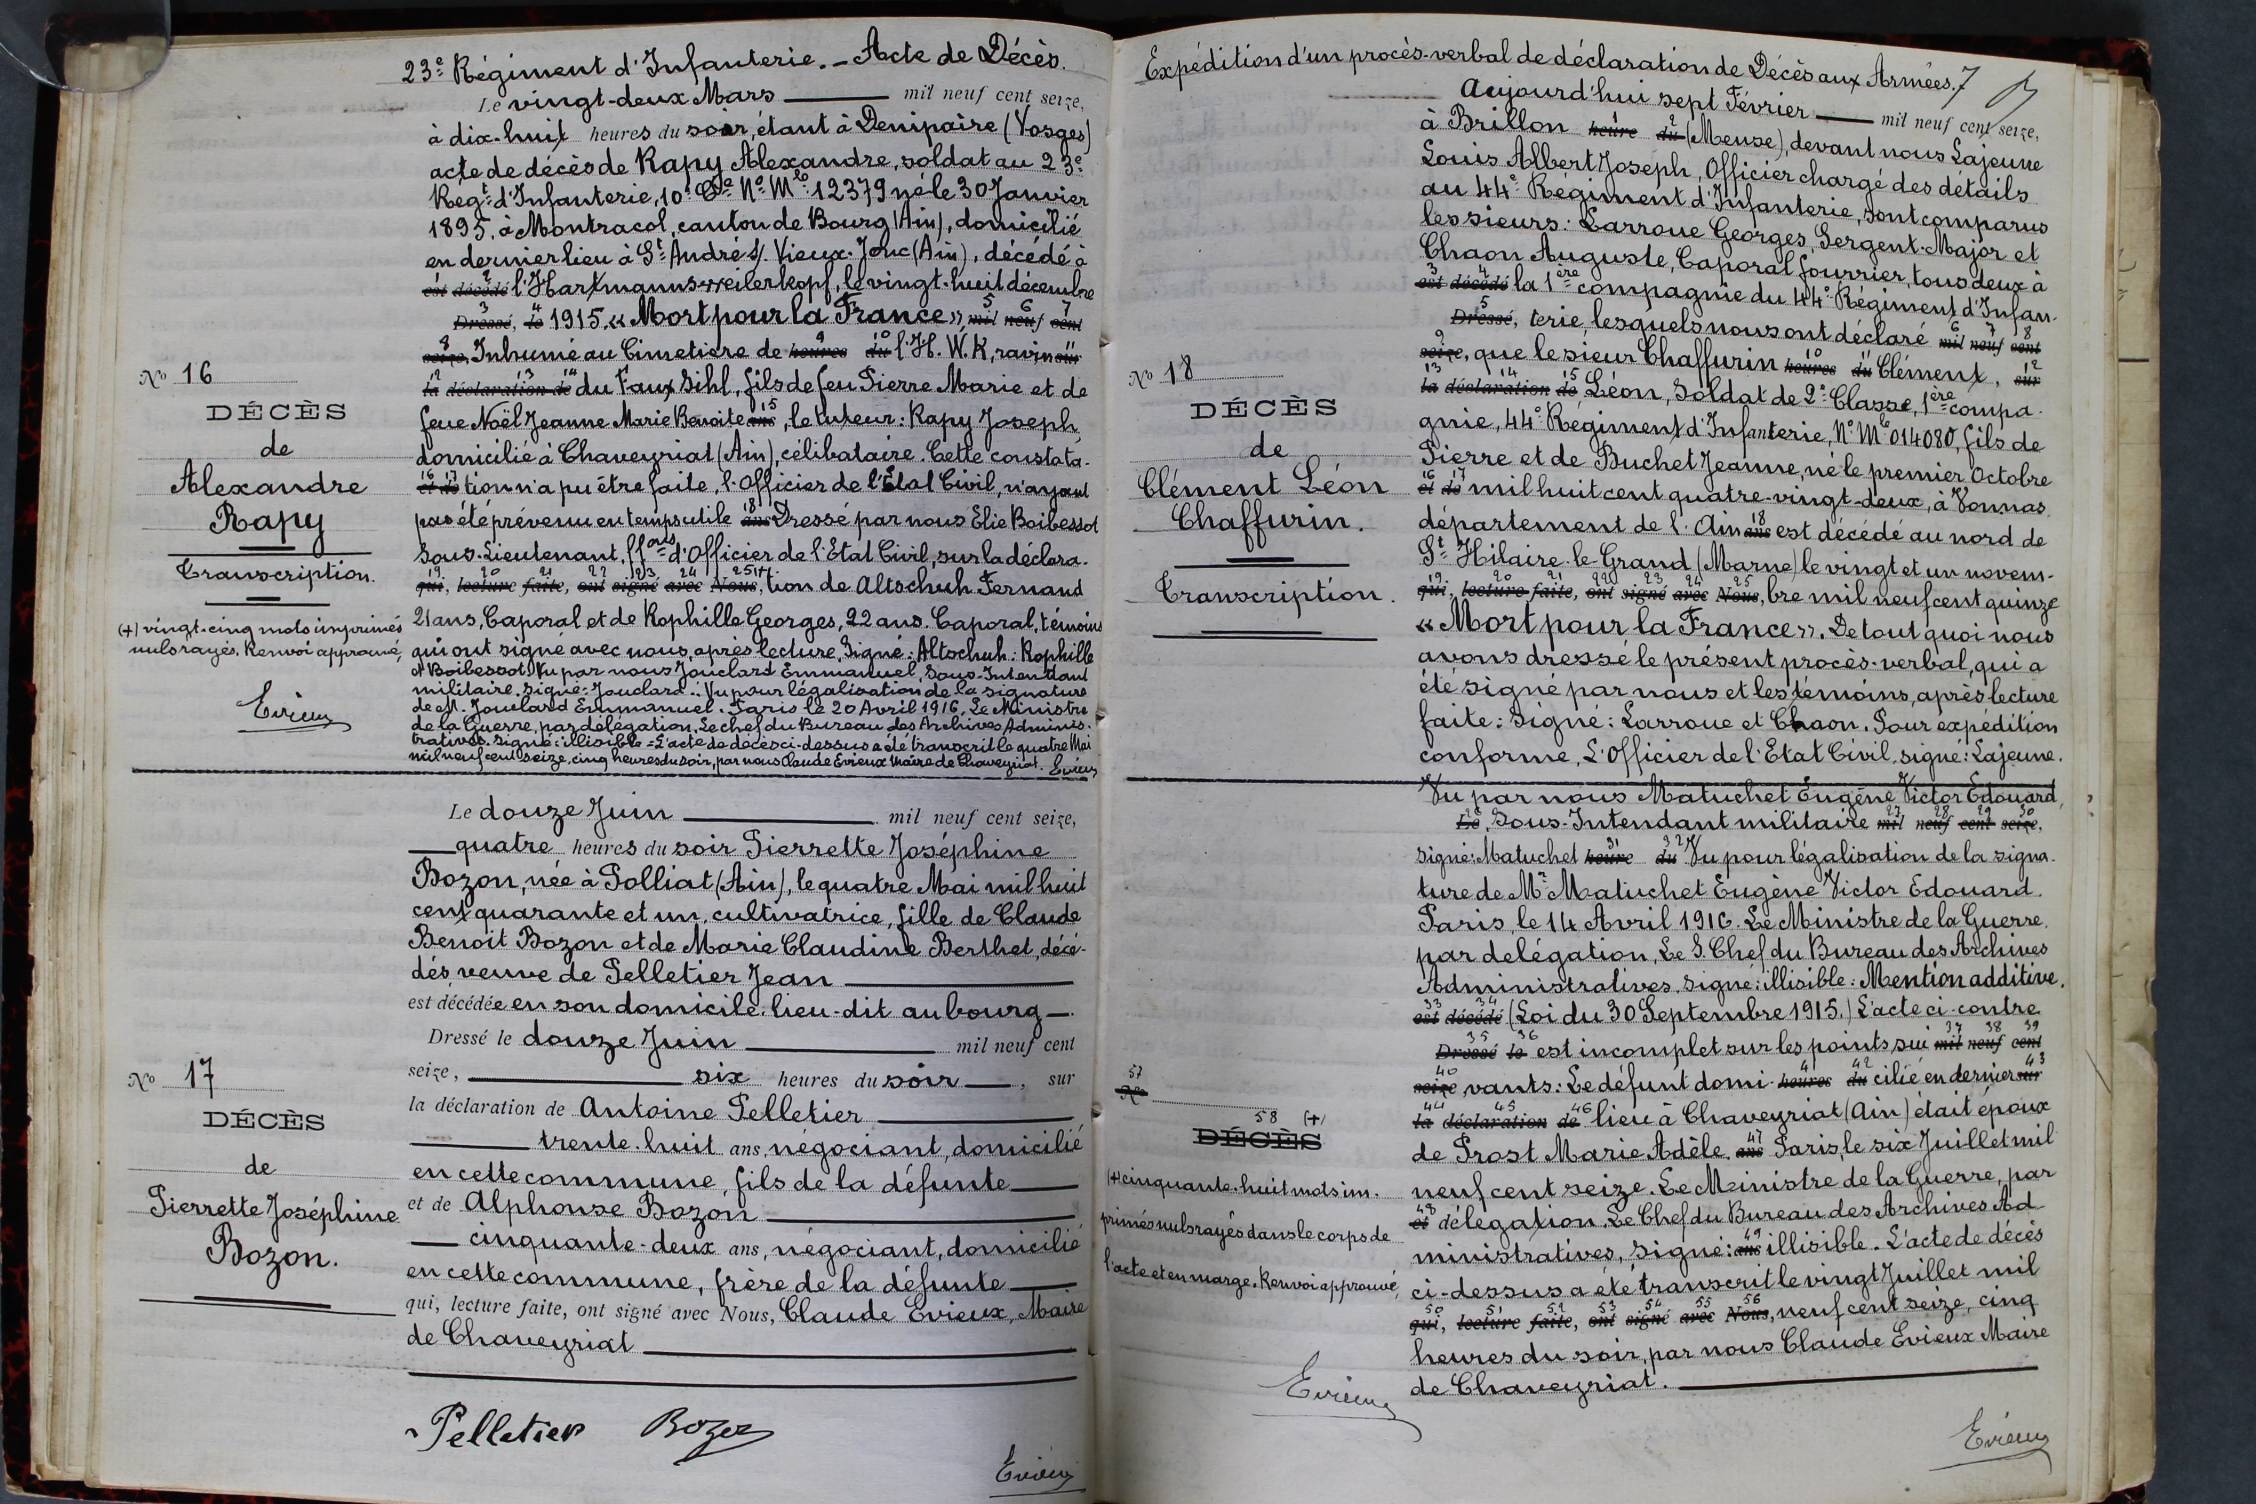 23e Régiment d'Infanterie. - Acte de Décès.
Le vingt-deux Mars mil neuf cent seize,
à dix-huit heures du soir, étant à Denipaire (Vosges)
acte de décès de Rapy Alexandre, soldat au 23e
Régt d'Infanterie, 10e Cie No Mle 12379 né le 30 Janvier
1895, à Montracol, canton de Bourg (Ain), domicilié
en dernier lieu à St André s/ Vieux-Jonc (Ain), décédé à
est décédé l'Hartmannsweilerkopf, le vingt-huit décembre
Dressé, le 1915. « Mort pour la France », mil neuf cent
seize, Inhumé au Cimetière de heures du l'H. W. K, ravin sur
la déclaration de du Faux Sihl, fils de feu Pierre Marie et de
feue Noël Jeanne Marie Benoite ans, le tuteur: Rapy Joseph,
domicilié à Chaveyriat (Ain), célibataire. Cette constata-
et de tion n'a pu être faite, l'Officier de l'État Civil, n'ayant
pas été prévenu en temps utile ans Dressé par nous Elie Boibessot
Sous-Lieutenant, ffons d'Officier de l'Etat Civil, sur la déclara-
qui, lecture faite, ont signé avec Nous, (+) tion de Altschuh Fernand
21 ans, Caporal et de Kophille Georges, 22 ans. Caporal, témoins
qui ont signé avec nous, après lecture, Signé: Altschuh: Kophille
et Boibessot. Vu par nous Jouclard Emmanuel, Sous-Intendant
militaire. Signé: Jouclard.: Vu pour légalisation de la signature
de M. Jouclard Emmanuel. Paris le 20 Avril 1916, Le Ministre
de la Guerre, par délégation, Le chef du Bureau des Archives Adminis-
tratives. Signé: illisible = L'acte de décès ci-dessus a été transcrit le quatre Mai
mil neuf cent seize, cinq heures du soir, par nous Claude Evieux Maire de Chaveyriat. Evieux
No 16
DÉCÈS
de
Alexandre
Rapy
Transcription.
(+) vingt-cinq mots imprimés
nuls rayés. Renvoi approuvé,
Evieux
Le douze Juin mil neuf cent seize,
quatre heures du soir Pierrette Joséphine
Bozon, née à Polliat (Ain), le quatre Mai mil huit
cent quarante et un, cultivatrice, fille de Claude
Benoit Bozon et de Marie Claudine Berthet, décé-
dés, veuve de Pelletier Jean
est décédée en son domicile. lieu-dit au bourg.
Dressé le douze Juin mil neuf cent
seize, six heures du soir, sur
la déclaration de Antoine Pelletier
trente-huit ans, négociant, domicilié
en cette commune, fils de la défunte
et de Alphonse Bozon
cinquante-deux ans, négociant, domicilié
en cette commune, frère de la défunte
qui, lecture faite, ont signé avec Nous, Claude Evieux, Maire
de Chaveyriat
No 17
DÉCÈS
de
Pierrette Joséphine
Bozon.
Pelletier Bozon
Evieux
Expédition d'un procès-verbal de déclaration de Décès aux Armées. 7
Aujourd'hui sept Février mil neuf cent seize,
à Brillon heure du (Meuse), devant nous Lajeune
Louis Albert Joseph, Officier chargé des détails
au 44e Régiment d'Infanterie, sont comparus
les sieurs: Larroue Georges, Sergent-Major et
Chaon Auguste, Caporal fourrier, tous deux à
est décédé la 1ère compagnie du 44e Régiment d'Infan-
Dressé, terie, lesquels nous ont déclaré mil neuf cent
seize, que le sieur Chaffurin heures du Clément, sur
la déclaration de Léon, Soldat de 2e Classe, 1ère compa-
gnie, 44e Régiment d'Infanterie, No Mle 014080, fils de
Pierre et de Buchet Jeanne, né le premier Octobre
et de mil huit cent quatre-vingt-deux, à Vonnas
département de l'Ain ans est décédé au nord de
St Hilaire-le-Grand (Marne) le vingt et un novem-
qui, lecture faite, ont signé avec Nous, bre mil neuf cent quinze
« Mort pour la France ». De tout quoi nous
avons dressé le présent procès-verbal, qui a
été signé par nous et les témoins, après lecture
faite: Signé: Larroue et Chaon. Pour expédition
conforme, L'Officier de l'Etat Civil, signé: Lajeune.
Vu par nous Matuchet Eugène Victor Edouard,
Le, Sous-Intendant militaire mil neuf cent seize,
signé: Matuchet heure du Vu pour légalisation de la signa-
ture de Mr Matuchet Eugène Victor Edouard.
Paris, le 14 Avril 1916. Le Ministre de la Guerre.
par delégation, Le S. Chef du Bureau des Archives
Administratives. Signé: illisible: Mention additive.
est décédé (Loi du 30 Septembre 1915.) L'acte ci-contre
Dressé le est incomplet sur les points sui mil neuf cent
seize vants: Le défunt domi- heures du cilié en dernier sur
la déclaration de lieu à Chaveyriat (Ain) était époux
de Prost Marie Adèle. ans Paris, le six Juillet mil
neuf cent seize. Le Ministre de la Guerre, par
et délégation. Le Chef du Bureau des Archives Ad
ministratives, Signé: ans illisible. L'acte de décès
ci-dessus a été transcrit le vingt Juillet mil
qui, lecture faite, ont signé avec Nous, neuf cent seize, cinq
heures du soir, par nous Claude Evieux Maire
de Chaveyriat.
No 18
DÉCÈS
de
Clément Léon
Chaffurin.
Transcription.
57
No
58 (+)
DÉCÈS
(+) cinquante-huit mots im-
primés nuls rayés dans le corps de
l'acte et en marge. Renvoi approuvé,
Evieux
Evieux